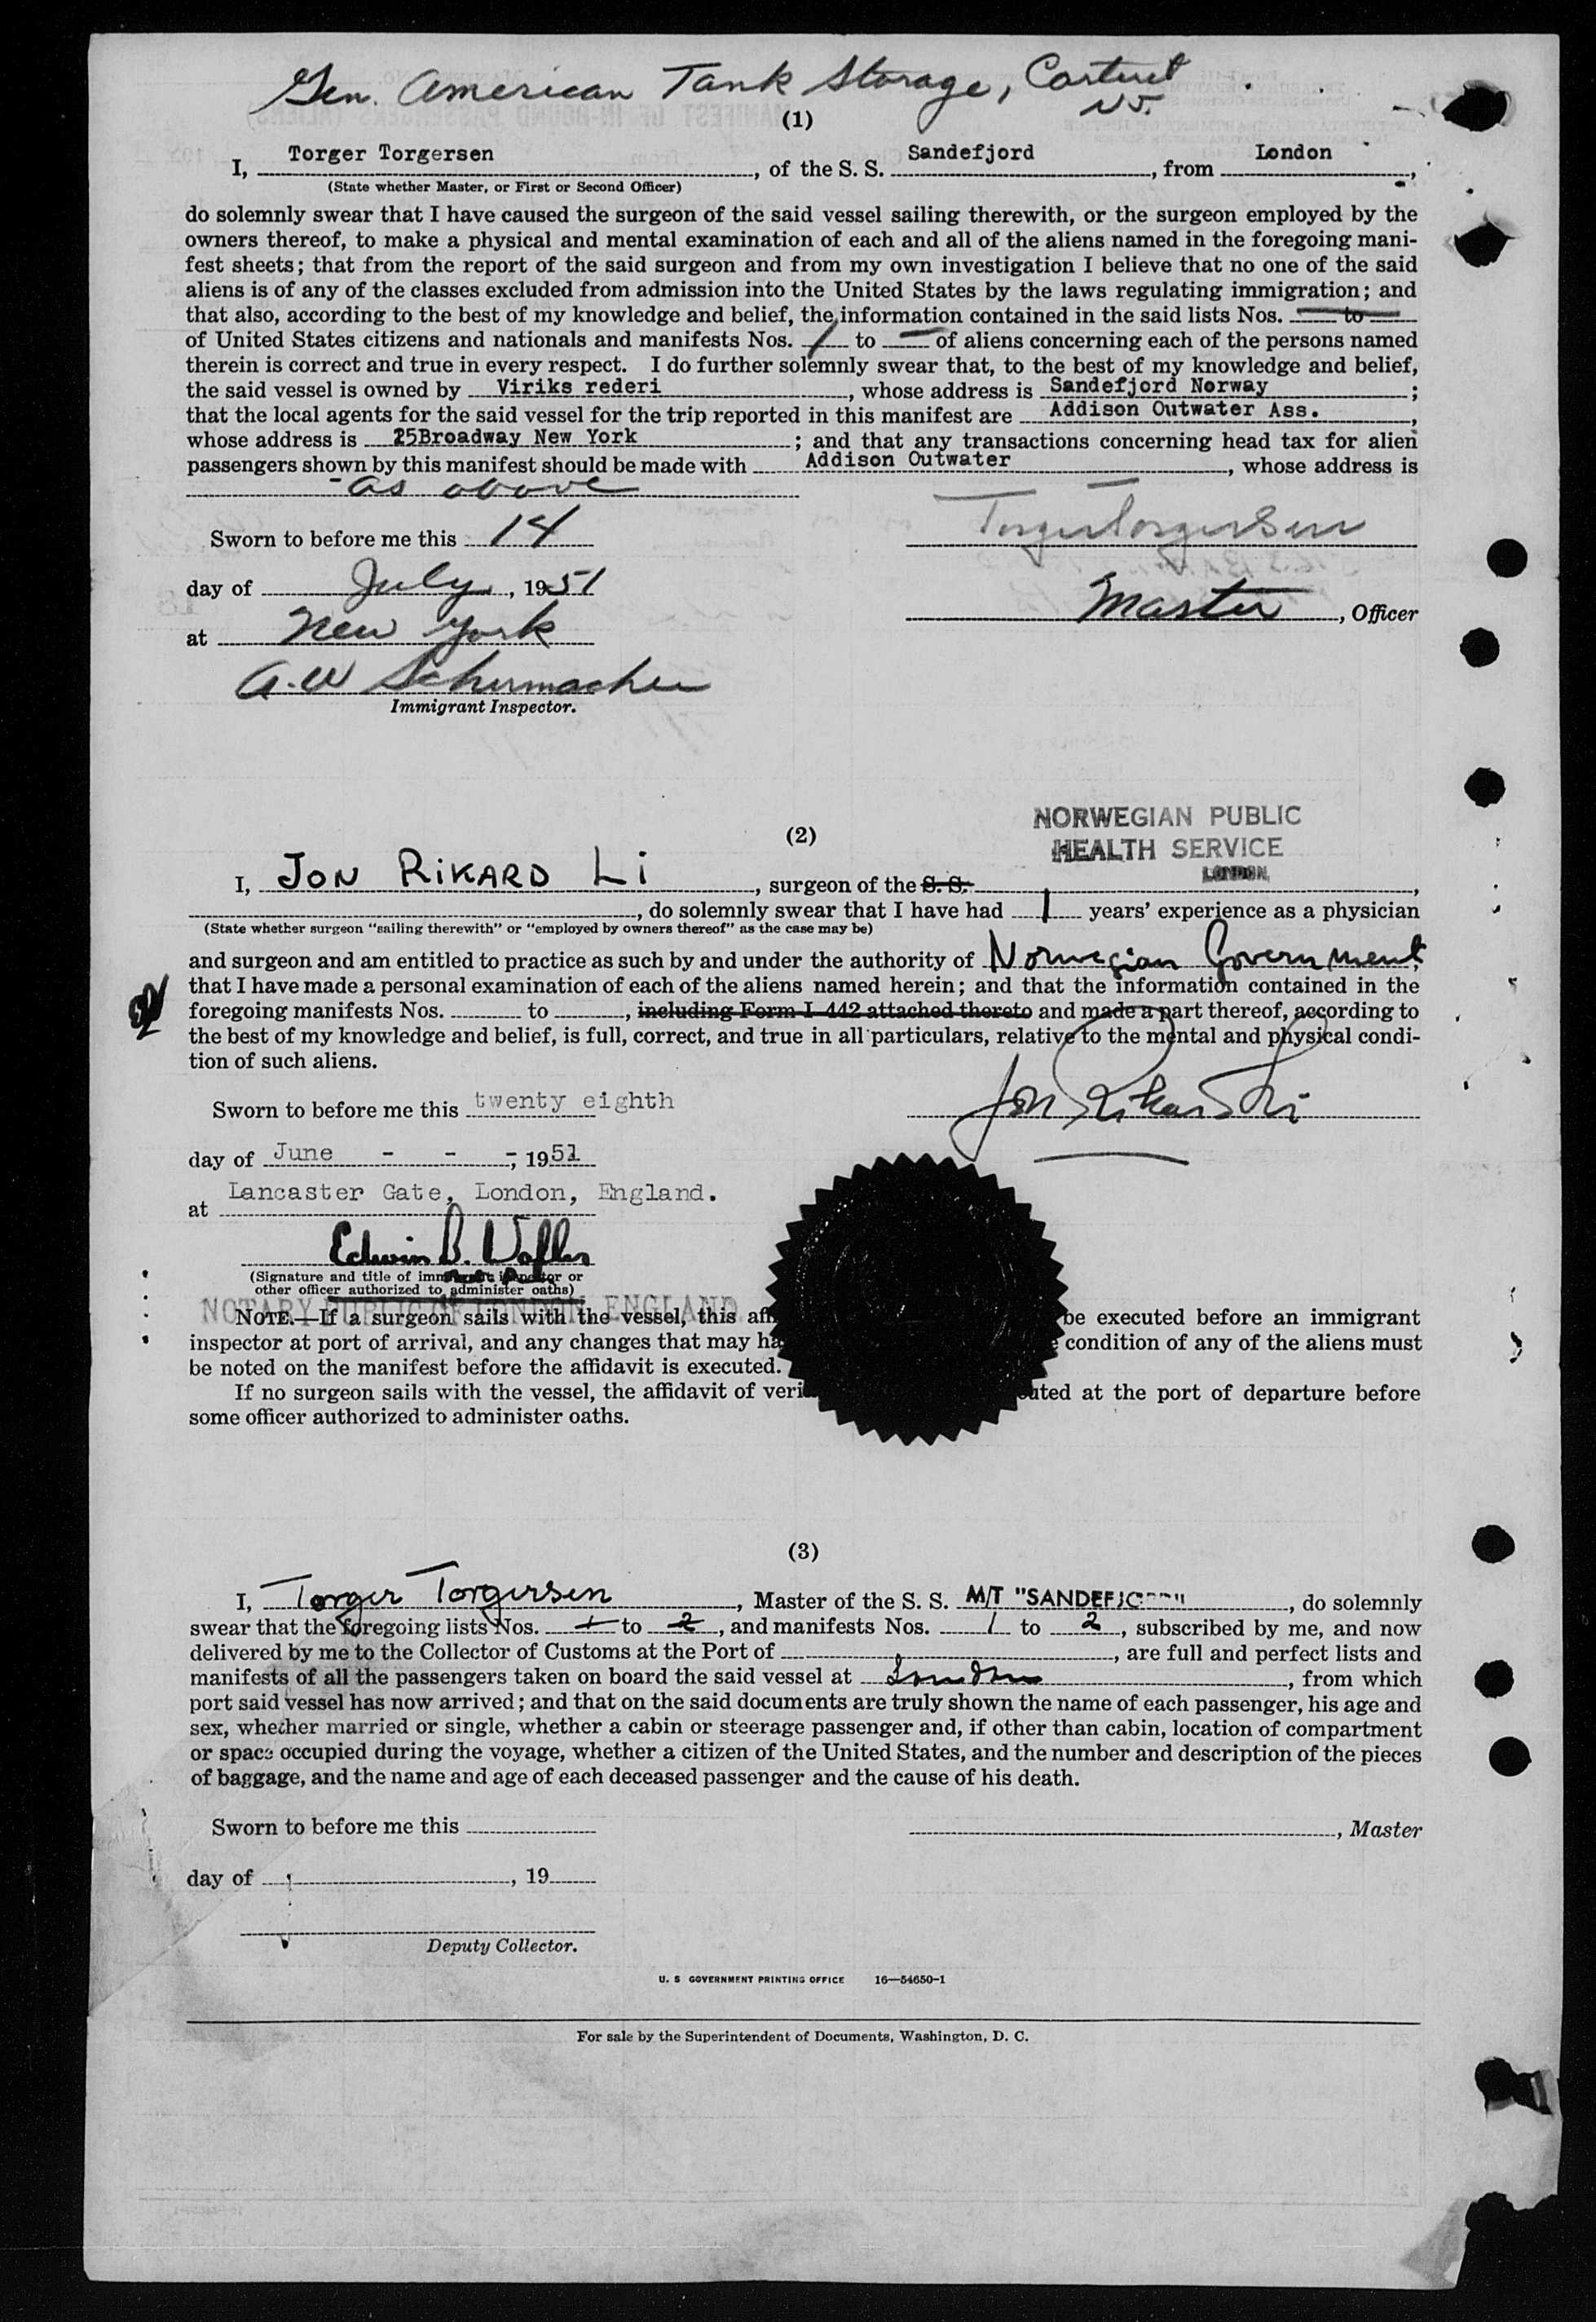 Gen. American Tank Storage, Carteret
NJ.
(1)
I, Torger Torgersen, of the S. S. Sandefjord, from London,
(State whether Master, or First or Second Officer)
do solemnly swear that I have caused the surgeon of the said vessel sailing therewith, or the surgeon employed by the
owners thereof, to make a physical and mental examination of each and all of the aliens named in the foregoing mani-
fest sheets; that from the report of the said surgeon and from my own investigation I believe that no one of the said
aliens is of any of the classes excluded from admission into the United States by the laws regulating immigration; and
that also, according to the best of my knowledge and belief, the information contained in the said lists Nos. — to —
of United States citizens and nationals and manifests Nos. 1 to — of aliens concerning each of the persons named
therein is correct and true in every respect. I do further solemnly swear that, to the best of my knowledge and belief,
the said vessel is owned by Viriks rederi, whose address is Sandefjord Norway;
that the local agents for the said vessel for the trip reported in this manifest are Addison Outwater Ass.,
whose address is 25Broadway New York; and that any transactions concerning head tax for alien
passengers shown by this manifest should be made with Addison Outwater, whose address is
- as above
Torger Torgersen
Sworn to before me this 14
day of July, 1951
Master, Officer
at New York
A. W Schumacher
Immigrant Inspector.
NORWEGIAN PUBLIC
HEALTH SERVICE
LONDON
(2)
I, JON RIKARD LI, surgeon of the S. S.,
, do solemnly swear that I have had 1 years' experience as a physician
(State whether surgeon "sailing therewith" or "employed by owners thereof" as the case may be)
and surgeon and am entitled to practice as such by and under the authority of Norwegian Government
that I have made a personal examination of each of the aliens named herein; and that the information contained in the
foregoing manifests Nos. to , including Form I-442 attached thereto and made a part thereof, according to
the best of my knowledge and belief, is full, correct, and true in all particulars, relative to the mental and physical condi-
tion of such aliens.
Jon Rikard Li
Sworn to before me this twenty eighth
day of June - - -, 1951
at Lancaster Gate, London, England.
Edwin B.
(Signature and title of immigrant inspector or
other officer authorized to administer oaths)
NOTARY PUBLIC OF LONDON, ENGLAND
NOTE.—If a surgeon sails with the vessel, this aff be executed before an immigrant
inspector at port of arrival, and any changes that may ha condition of any of the aliens must
be noted on the manifest before the affidavit is executed.
If no surgeon sails with the vessel, the affidavit of veri uted at the port of departure before
some officer authorized to administer oaths.
(3)
I, Torger Torgersen, Master of the S. S. M/T "SANDEFJORD", do solemnly
swear that the foregoing lists Nos. 1 to 2, and manifests Nos. 1 to 2, subscribed by me, and now
delivered by me to the Collector of Customs at the Port of , are full and perfect lists and
manifests of all the passengers taken on board the said vessel at London, from which
port said vessel has now arrived; and that on the said documents are truly shown the name of each passenger, his age and
sex, whether married or single, whether a cabin or steerage passenger and, if other than cabin, location of compartment
or space occupied during the voyage, whether a citizen of the United States, and the number and description of the pieces
of baggage, and the name and age of each deceased passenger and the cause of his death.
Sworn to before me this
, Master
day of , 19
Deputy Collector.
U. S GOVERNMENT PRINTING OFFICE 16—54650-1
For sale by the Superintendent of Documents, Washington, D. C.